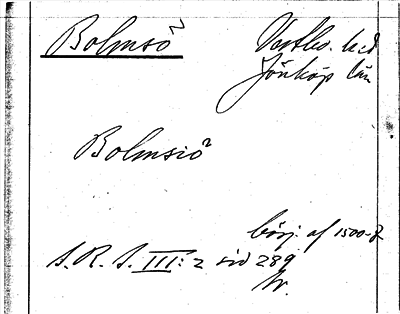 Bolmsö Vestbo. hed
Jönköp län
Bolmsiö
börj. af 1500-t
S. R. S. III: 2 sid 289